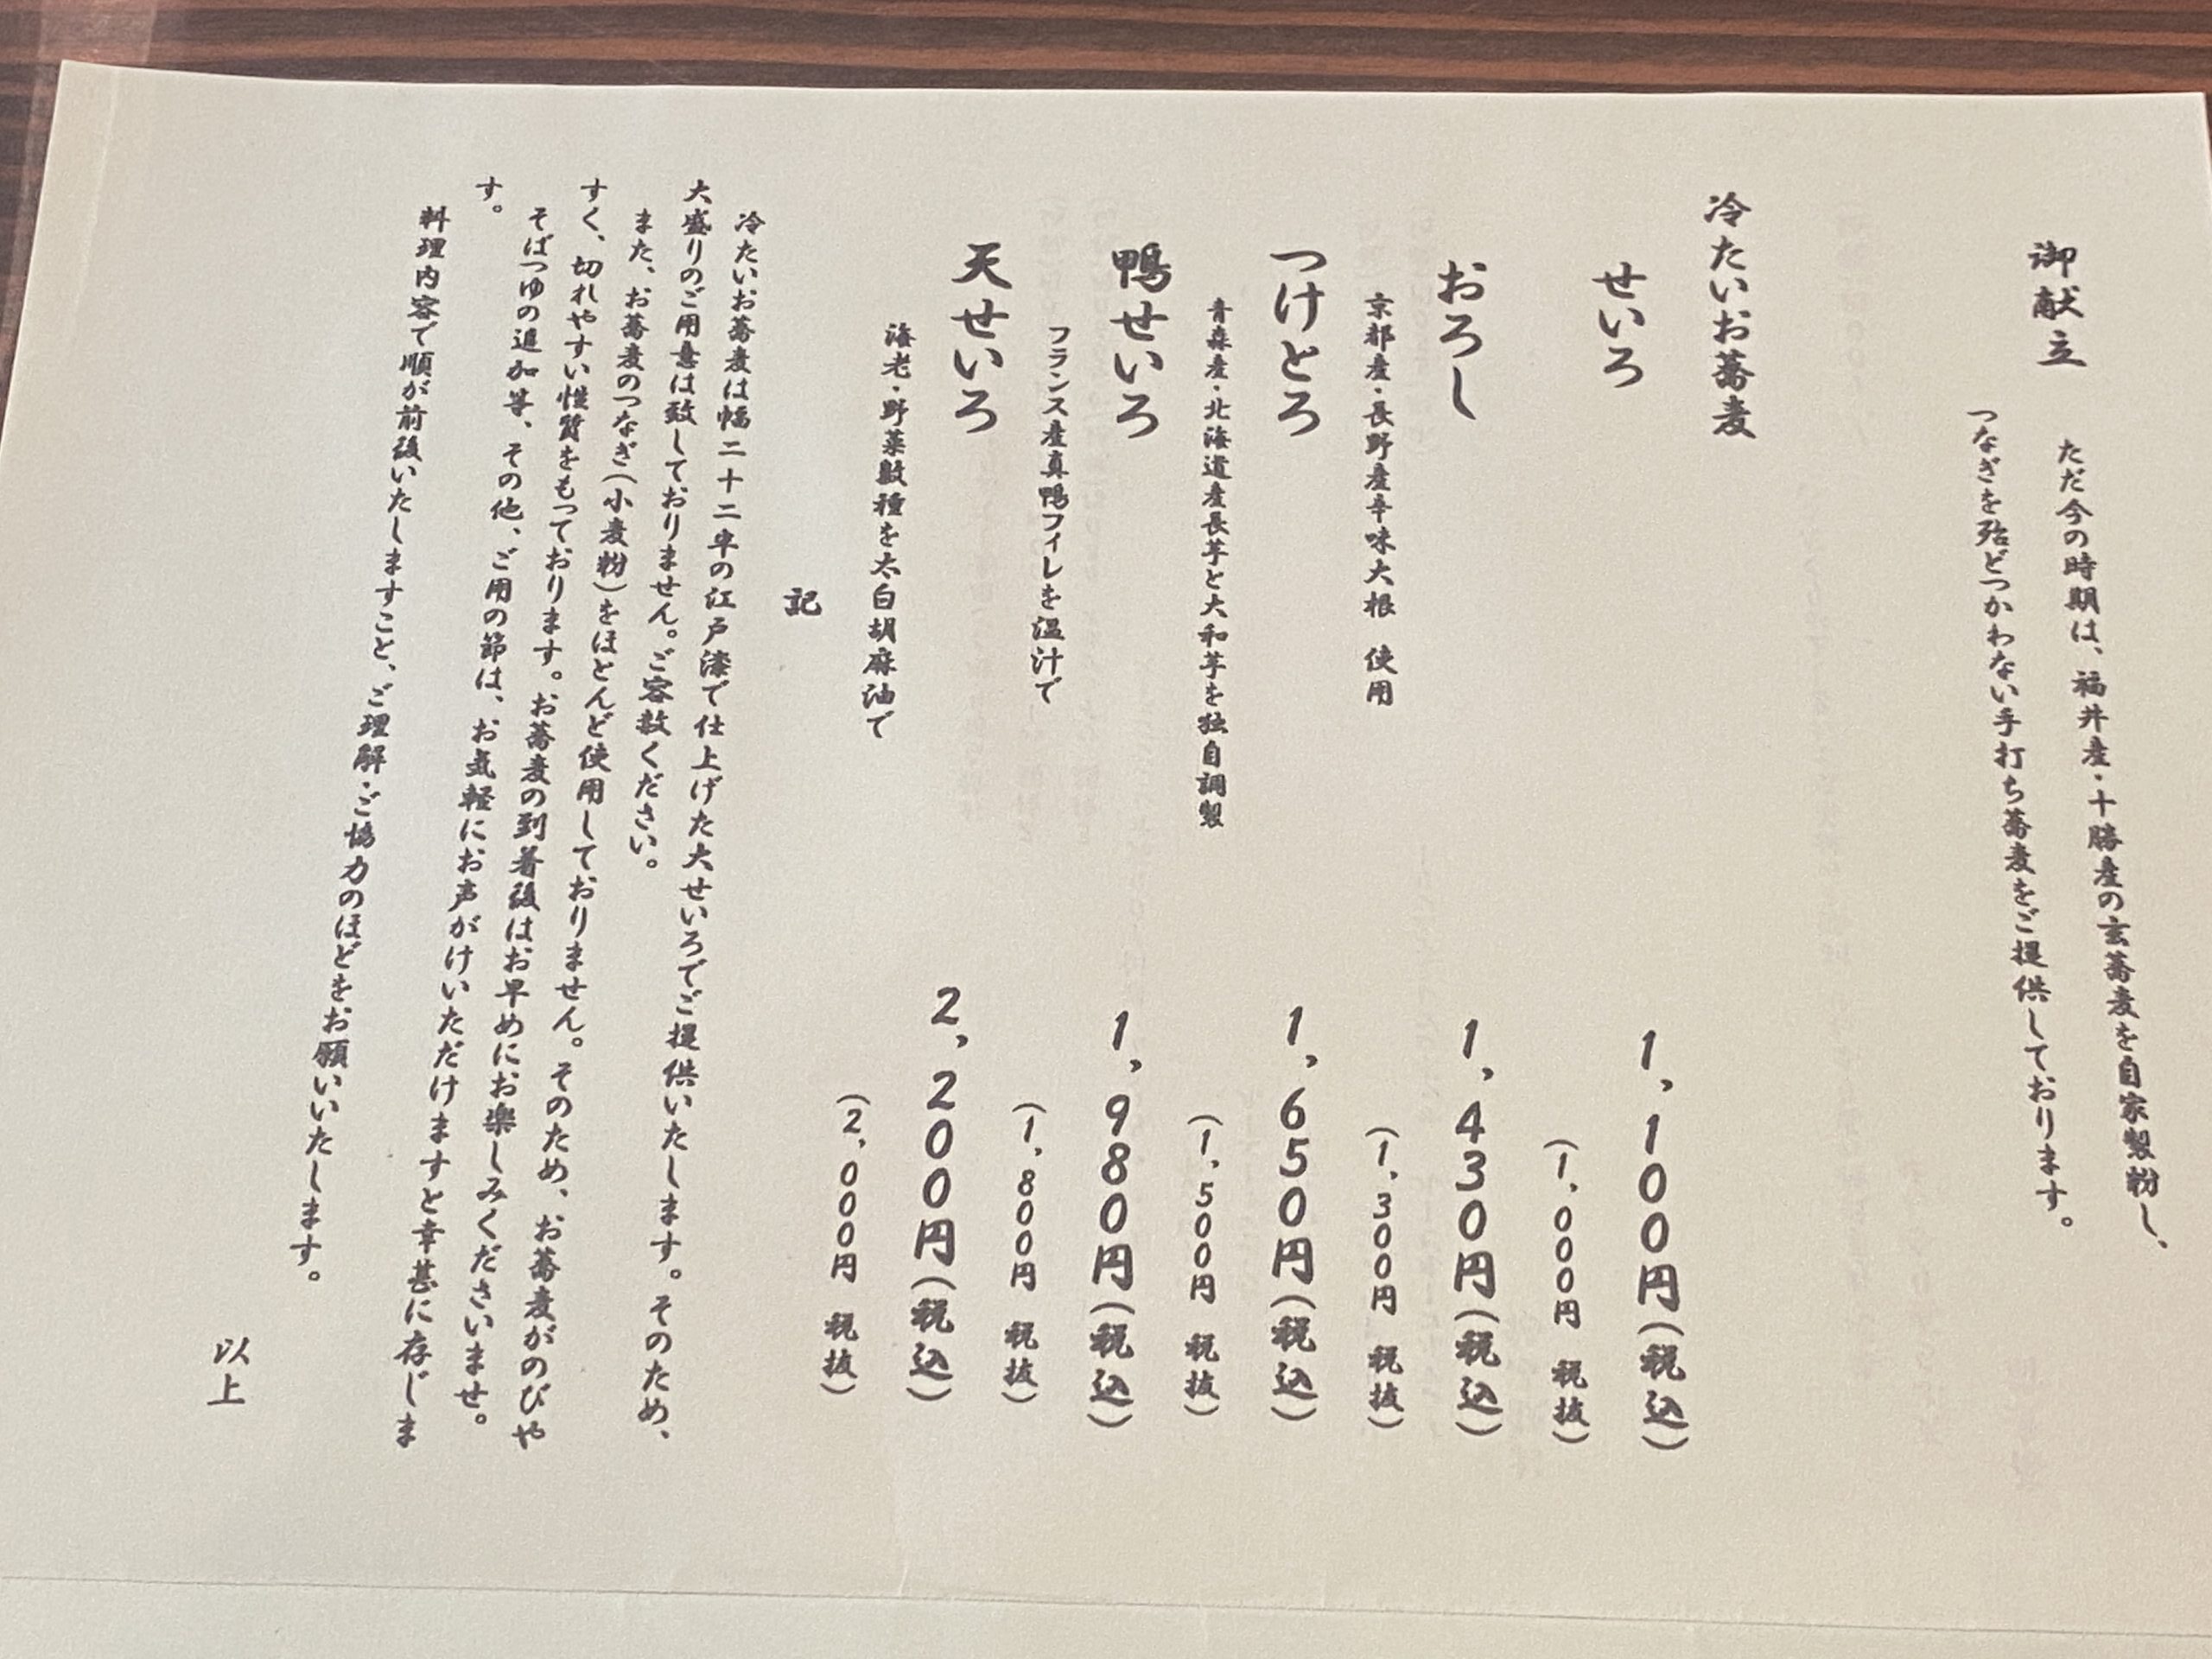 御献立
ただ今の時期は、福井産・十勝産の玄蕎麦を自家製粉し、
つなぎを殆どつかわない手打ち蕎麦をご提供しております。
冷たいお蕎麦
せいろ
1,100円(税込)
(1,000円 税抜)
おろし
1,430円(税込)
京都産・長野産辛味大根 使用
(1,300円 税抜)
つけとろ
1,650円(税込)
青森産・北海道産長芋と大和芋を独自調製
(1,500円 税抜)
鴨せいろ
1,980円(税込)
フランス産真鴨フィレを温汁で
(1,800円 税抜)
天せいろ
2,200円(税込)
海老・野菜数種を太白胡麻油で
(2,000円 税抜)
記
冷たいお蕎麦は幅二十二㎝の江戸漆で仕上げた大せいろでご提供いたします。そのため、
大盛りのご用意は致しておりません。ご容赦ください。
また、お蕎麦のつなぎ(小麦粉)をほとんど使用しておりません。そのため、お蕎麦がのびや
すく、切れやすい性質をもっております。お蕎麦の到着後はお早めにお楽しみくださいませ。
そばつゆの追加等、その他、ご用の節は、お気軽にお声がけいただけますと幸甚に存じま
す。
料理内容で順が前後いたしますこと、ご理解・ご協力のほどをお願いいたします。
以上